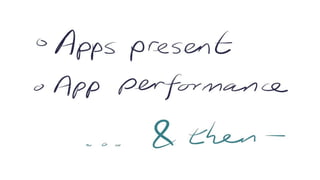 ◦ Apps present
◦ App performance
... & then –